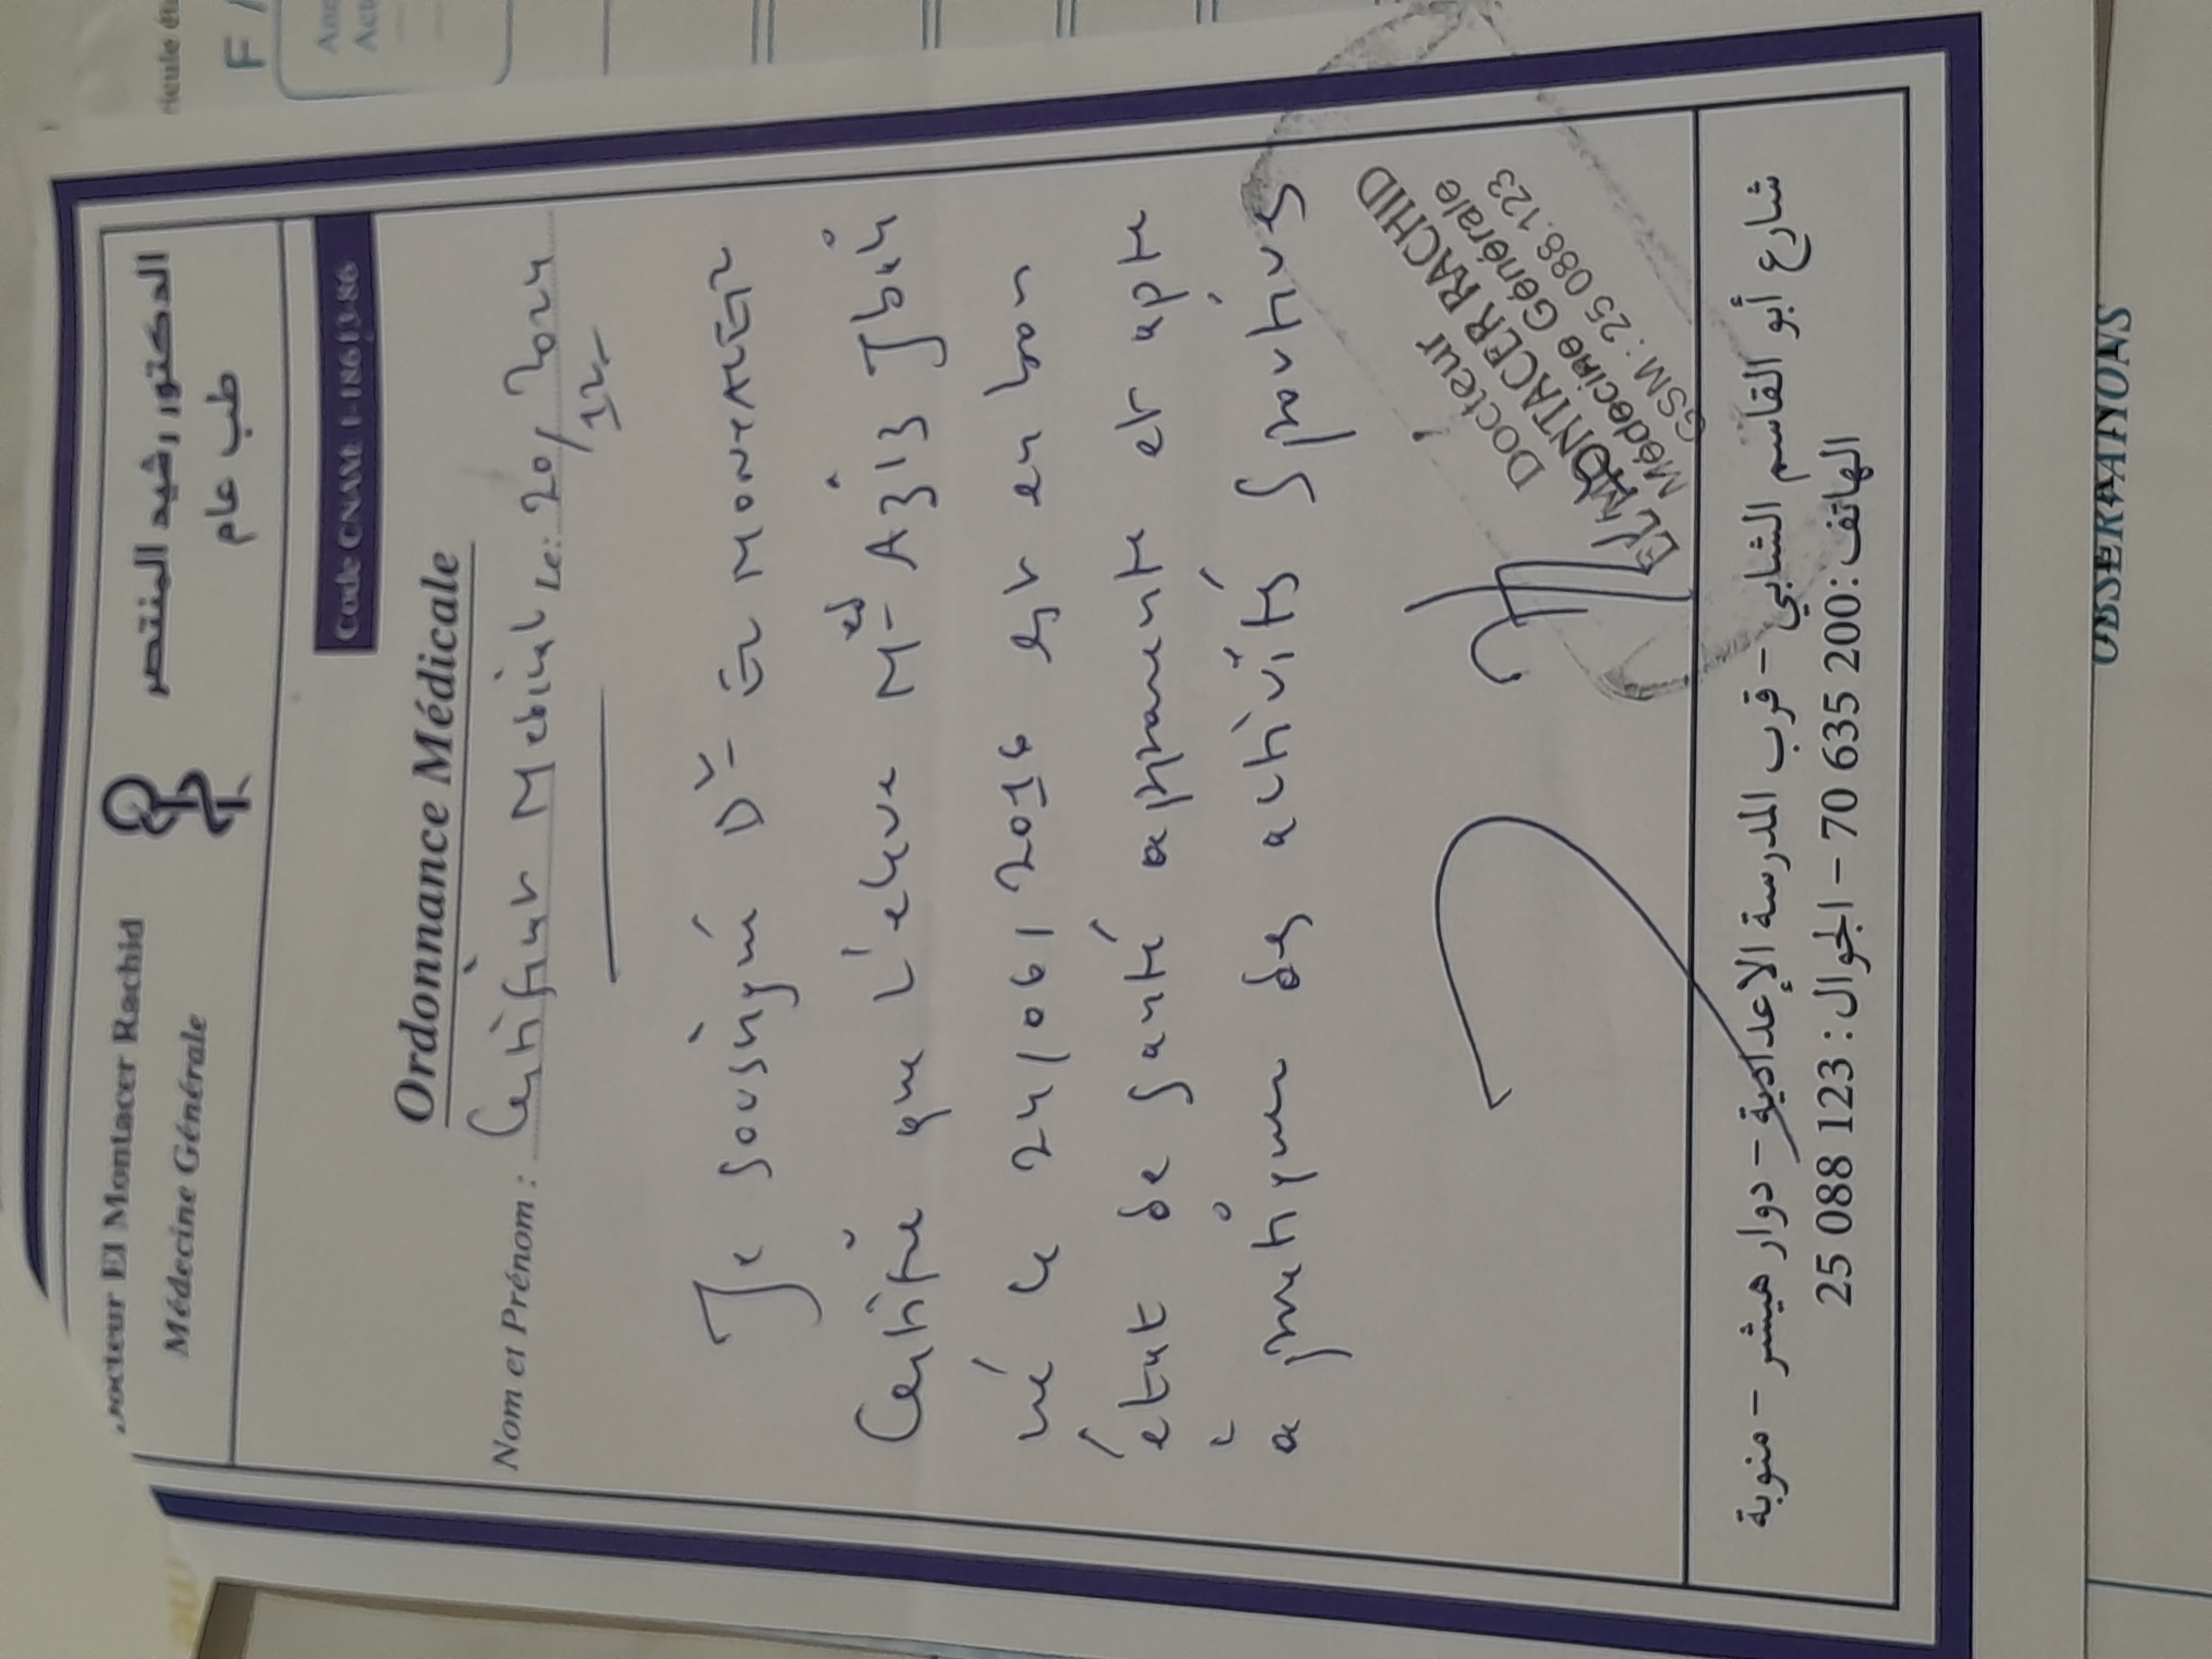 Docteur El Montacer Rachid
Médecine Générale
الدكتور رشيد المنتصر
طب عام
Code CNAM: 1-18613-86
Ordonnance Médicale
Nom et Prénom : Certificat Medical Le: 20/ 12 / 2024
Je soussigné Dr
Certifie que l'eleve Med Aziz
né le 24/06/2016 est en bon
état de santé apparente et apte
à pratiquer des activités sportives
Docteur
EL MONTACER RACHID
Médecine Générale
GSM : 25 088.123
شارع أبو القاسم الشابي - قرب المدرسة الإعدادية - دوار هيشر - منوبة
الهاتف : 200 635 70 - الجوال : 123 088 25
OBSERVATIONS